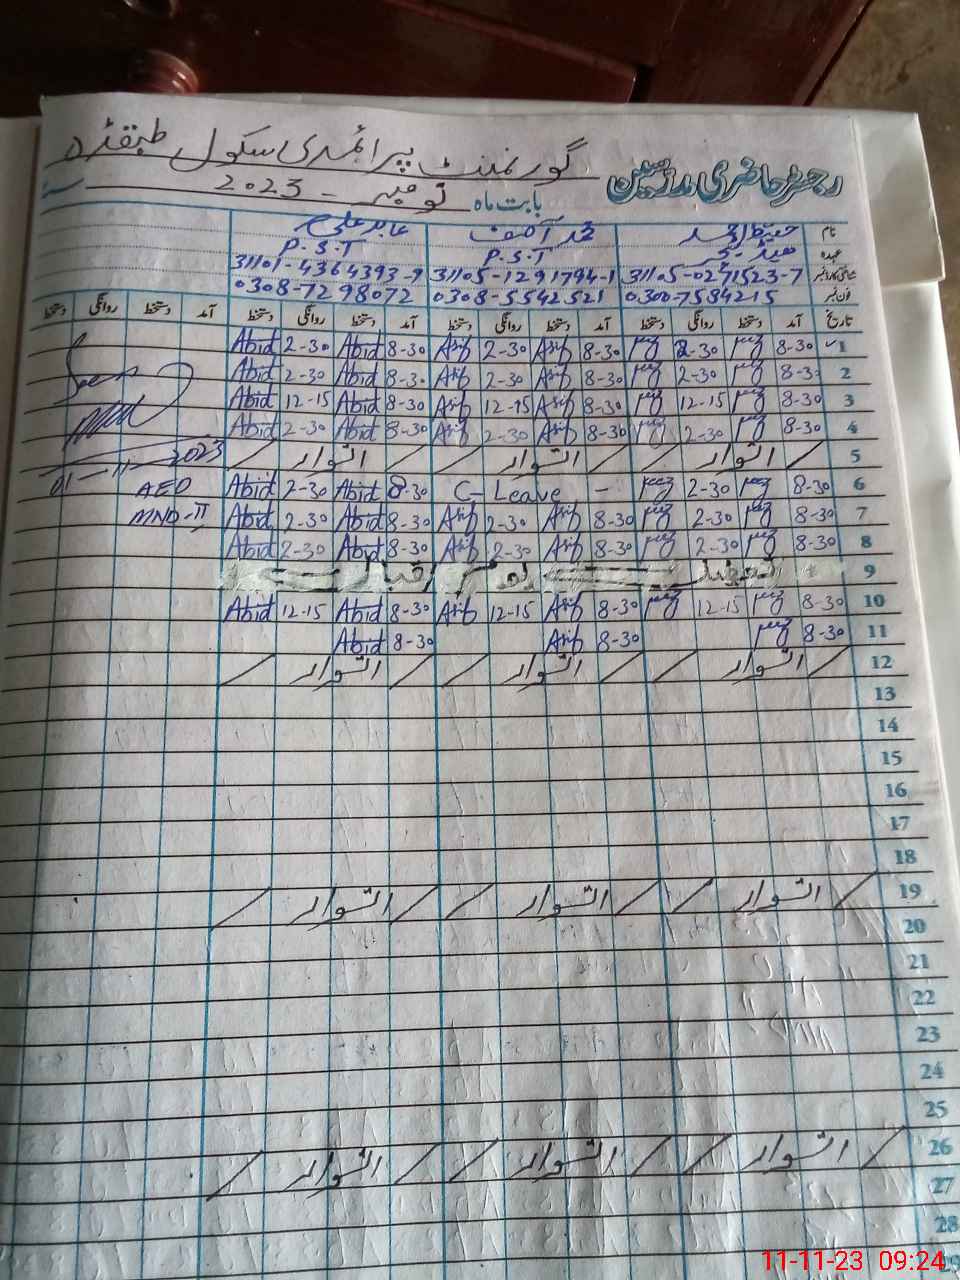 گورنمنٹ پرائمری سکول طبقڑہ
رجسٹر حاضری مدرسین
بابت ماہ نومبر - 2023 سنہ
نام حفیظ احمد محمد آصف عابد علی
عہدہ ہیڈ ٹیچر P.S.T P.S.T
شناختی کارڈ نمبر 31105-0271523-7 31105-1291794-1 31101-4364393-9
فون نمبر 0300-7584215 0308-5542521 0308-7298072
تاریخ آمد دستخط روانگی دستخط آمد دستخط روانگی دستخط آمد دستخط روانگی دستخط آمد دستخط روانگی دستخط
1 8-30 2-30 8-30 Asif 2-30 Asif 8-30 Abid 2-30 Abid
2 8-30 2-30 8-30 Asif 2-30 Asif 8-30 Abid 2-30 Abid
3 8-30 12-15 8-30 Asif 12-15 Asif 8-30 Abid 12-15 Abid
4 8-30 2-30 8-30 Asif 2-30 Asif 8-30 Abid 2-30 Abid
5 / اتوار / / اتوار / / اتوار /
6 8-30 2-30 C-Leave - 8-30 Abid 2-30 Abid
7 8-30 2-30 8-30 Asif 2-30 Asif 8-30 Abid 2-30 Abid
8 8-30 2-30 8-30 Asif 2-30 Asif 8-30 Abid 2-30 Abid
9 تعطیل یوم اقبال
10 8-30 12-15 8-30 Asif 12-15 Asif 8-30 Abid 12-15 Abid
11 8-30 8-30 Asif 8-30 Abid
12 / اتوار / / اتوار / / اتوار /
13
14
15
16
17
18
19 / اتوار / / اتوار / / اتوار /
20
21
22
23
24
25
26 / اتوار / / اتوار / / اتوار /
27
28
29
01-11-2023
AEO
MND-II
11-11-23 09:24